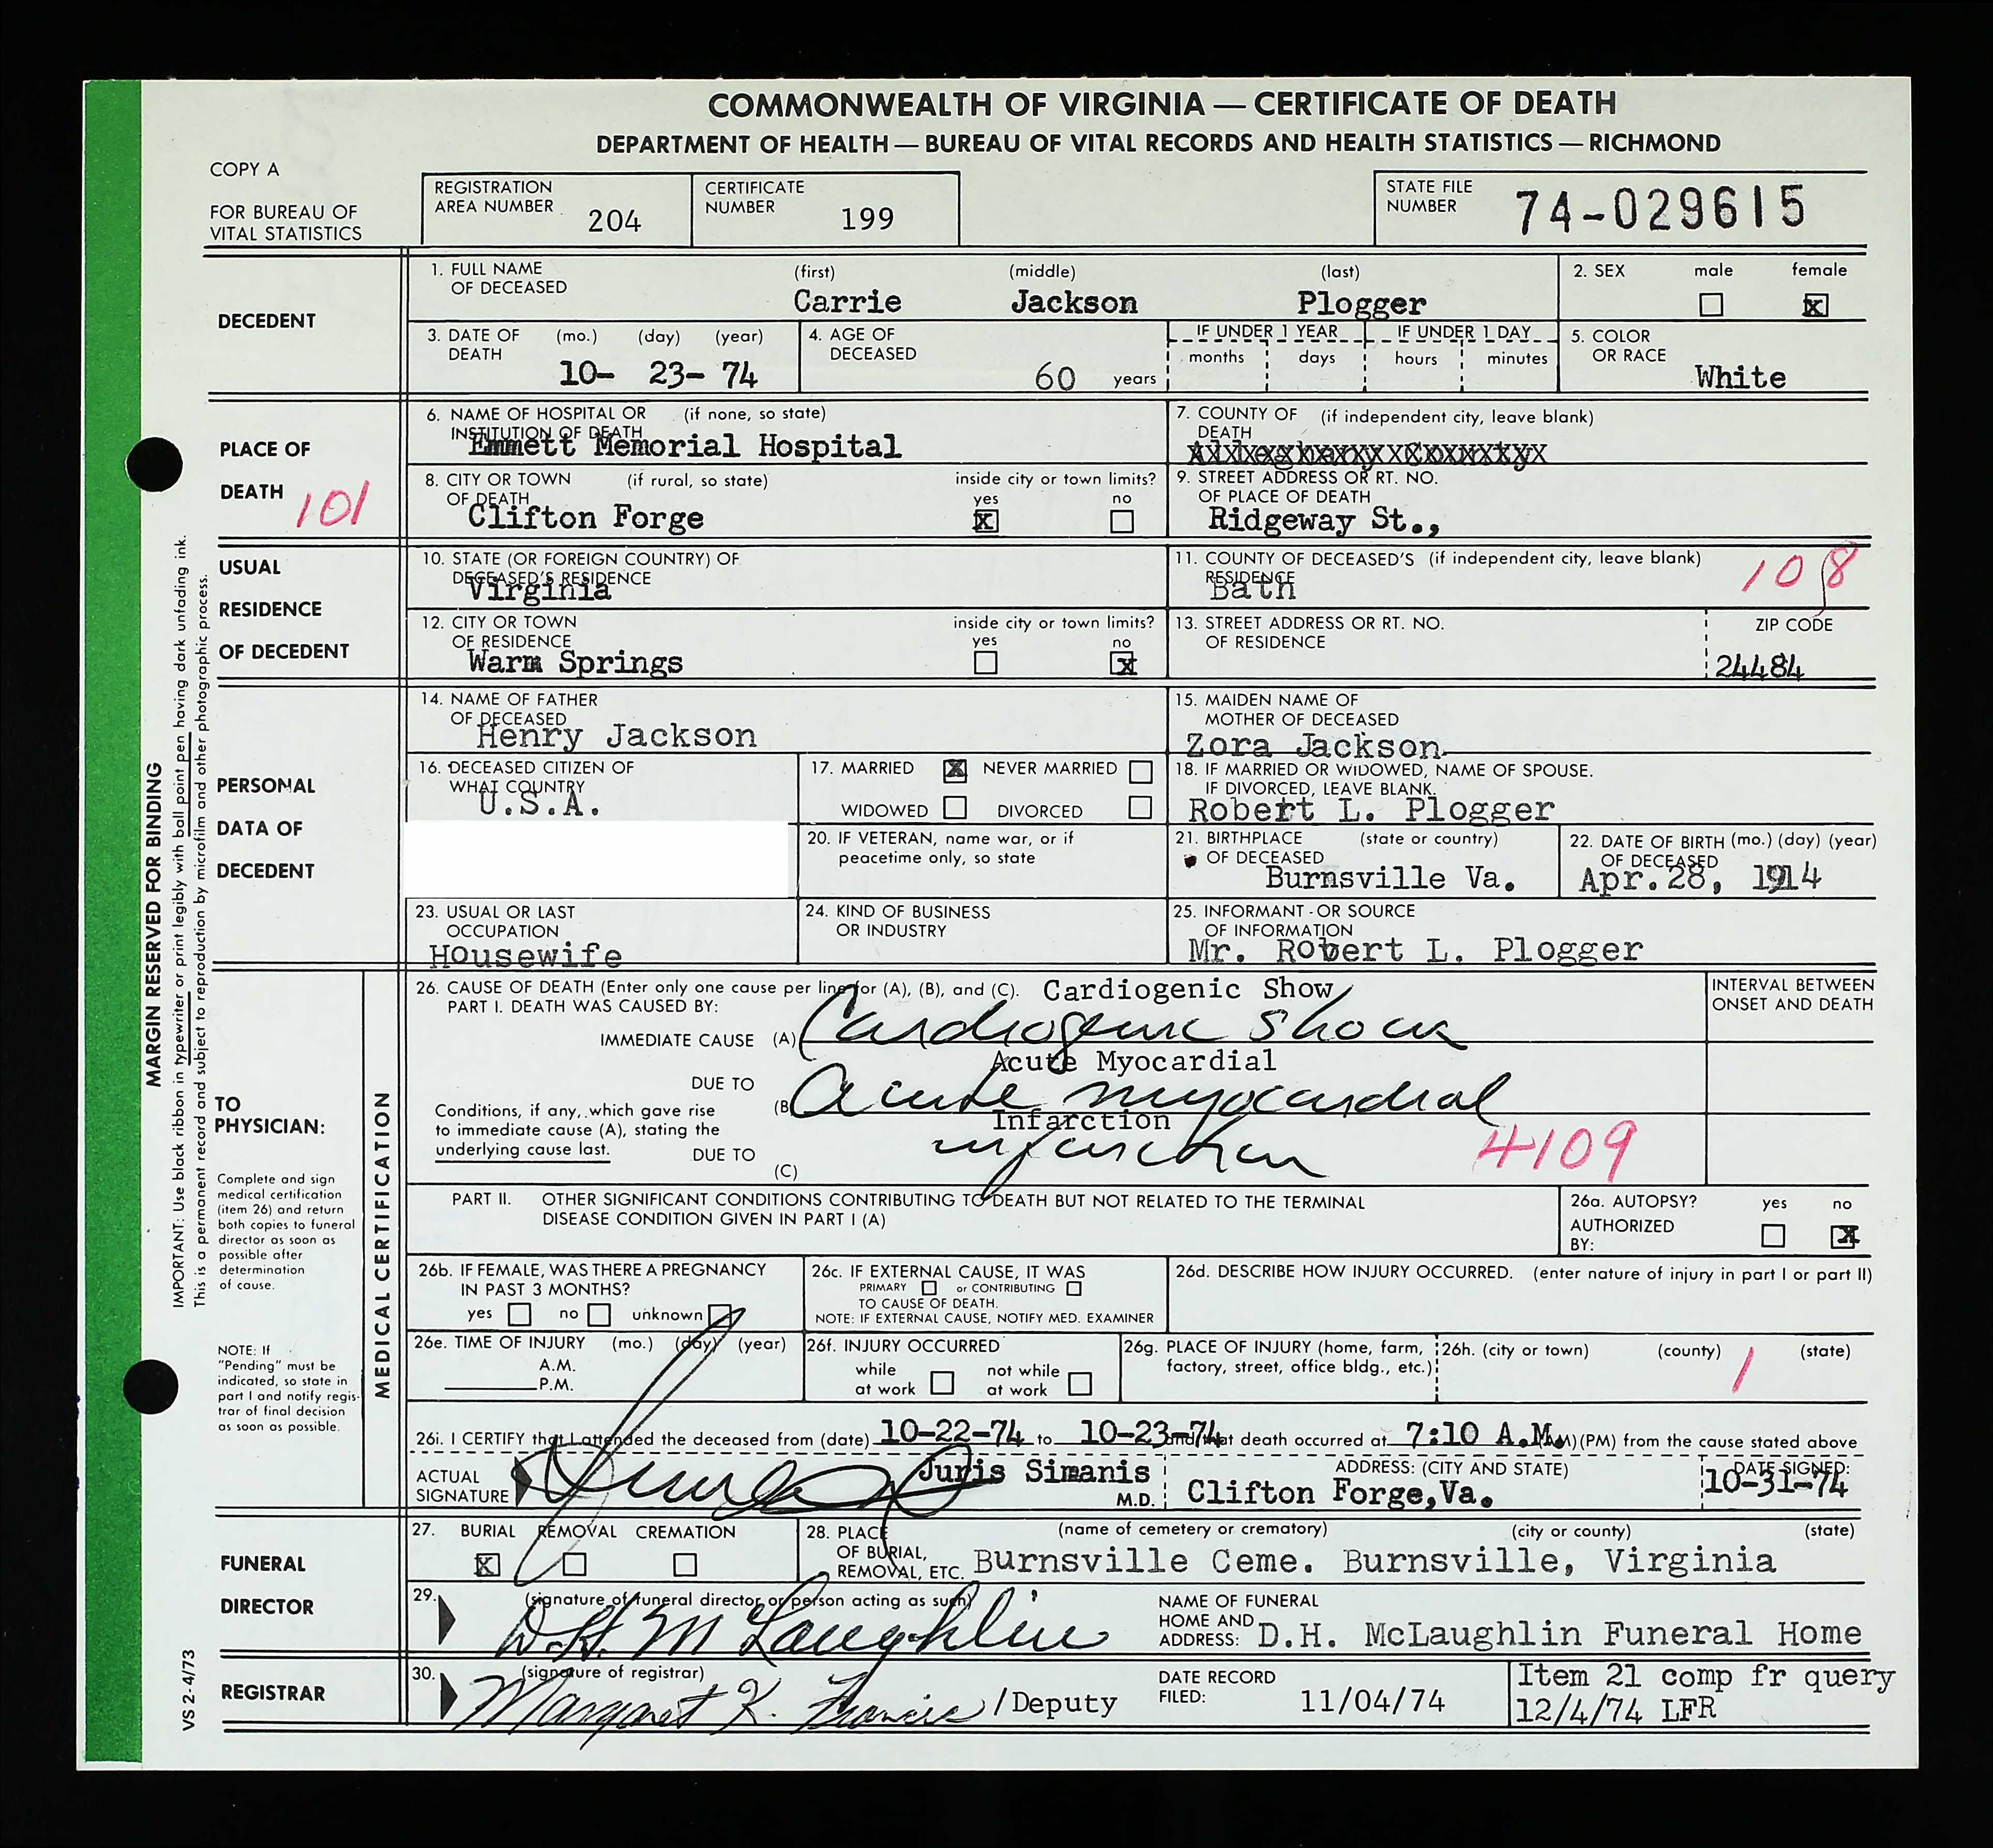 COMMONWEALTH OF VIRGINIA — CERTIFICATE OF DEATH
DEPARTMENT OF HEALTH — BUREAU OF VITAL RECORDS AND HEALTH STATISTICS — RICHMOND
COPY A
FOR BUREAU OF
VITAL STATISTICS
REGISTRATION
AREA NUMBER 204
CERTIFICATE
NUMBER 199
STATE FILE
NUMBER 74-029615
MARGIN RESERVED FOR BINDING
IMPORTANT: Use black ribbon in typewriter or print legibly with ball point pen having dark unfading ink.
This is a permanent record and subject to reproduction by microfilm and other photographic process.
VS 2-4/73
DECEDENT
1. FULL NAME (first) (middle) (last)
OF DECEASED
Carrie Jackson Plogger
2. SEX male female
X
3. DATE OF (mo.) (day) (year)
DEATH
10- 23- 74
4. AGE OF
DECEASED
60 years
IF UNDER 1 YEAR IF UNDER 1 DAY
months days hours minutes
5. COLOR
OR RACE
White
PLACE OF
DEATH 101
6. NAME OF HOSPITAL OR (if none, so state)
INSTITUTION OF DEATH
Emmett Memorial Hospital
7. COUNTY OF (if independent city, leave blank)
DEATH
8. CITY OR TOWN (if rural, so state) inside city or town limits?
OF DEATH yes no
Clifton Forge X
9. STREET ADDRESS OR RT. NO.
OF PLACE OF DEATH
Ridgeway St.,
USUAL
RESIDENCE
OF DECEDENT
10. STATE (OR FOREIGN COUNTRY) OF
DECEASED'S RESIDENCE
Virginia
11. COUNTY OF DECEASED'S (if independent city, leave blank)
RESIDENCE
Bath
108
12. CITY OR TOWN inside city or town limits?
OF RESIDENCE yes no
Warm Springs x
13. STREET ADDRESS OR RT. NO.
OF RESIDENCE
ZIP CODE
24484
PERSONAL
DATA OF
DECEDENT
14. NAME OF FATHER
OF DECEASED
Henry Jackson
15. MAIDEN NAME OF
MOTHER OF DECEASED
Zora Jackson
16. DECEASED CITIZEN OF
WHAT COUNTRY
U.S.A.
17. MARRIED X NEVER MARRIED
WIDOWED DIVORCED
18. IF MARRIED OR WIDOWED, NAME OF SPOUSE.
IF DIVORCED, LEAVE BLANK.
Robert L. Plogger
20. IF VETERAN, name war, or if
peacetime only, so state
21. BIRTHPLACE (state or country)
OF DECEASED
Burnsville Va.
22. DATE OF BIRTH (mo.) (day) (year)
OF DECEASED
Apr. 28, 1914
23. USUAL OR LAST
OCCUPATION
Housewife
24. KIND OF BUSINESS
OR INDUSTRY
25. INFORMANT - OR SOURCE
OF INFORMATION
Mr. Robert L. Plogger
TO
PHYSICIAN:
Complete and sign
medical certification
(item 26) and return
both copies to funeral
director as soon as
possible after
determination
of cause.
NOTE: If
"Pending" must be
indicated, so state in
part I and notify regis-
trar of final decision
as soon as possible.
MEDICAL CERTIFICATION
26. CAUSE OF DEATH (Enter only one cause per line for (A), (B), and (C).
PART I. DEATH WAS CAUSED BY:
Cardiogenic Show
IMMEDIATE CAUSE (A) Cardiogenic Shock
Acute Myocardial
DUE TO
(B) Acute myocardial
Infarction
infarction
Conditions, if any, which gave rise
to immediate cause (A), stating the
underlying cause last. DUE TO
(C)
4109
INTERVAL BETWEEN
ONSET AND DEATH
PART II. OTHER SIGNIFICANT CONDITIONS CONTRIBUTING TO DEATH BUT NOT RELATED TO THE TERMINAL
DISEASE CONDITION GIVEN IN PART I (A)
26a. AUTOPSY? yes no
AUTHORIZED
BY: X
26b. IF FEMALE, WAS THERE A PREGNANCY
IN PAST 3 MONTHS?
yes no unknown
26c. IF EXTERNAL CAUSE, IT WAS
PRIMARY or CONTRIBUTING
TO CAUSE OF DEATH.
NOTE: IF EXTERNAL CAUSE, NOTIFY MED. EXAMINER
26d. DESCRIBE HOW INJURY OCCURRED. (enter nature of injury in part I or part II)
26e. TIME OF INJURY (mo.) (day) (year)
A.M.
P.M.
26f. INJURY OCCURRED
while not while
at work at work
26g. PLACE OF INJURY (home, farm,
factory, street, office bldg., etc.)
26h. (city or town) (county) (state)
1
26i. I CERTIFY that I attended the deceased from (date) 10-22-74 to 10-23-74 and that death occurred at 7:10 A.M. (AM)(PM) from the cause stated above
ACTUAL
SIGNATURE
Juris Simanis
M.D.
ADDRESS: (CITY AND STATE)
Clifton Forge,Va.
DATE SIGNED:
10-31-74
FUNERAL
DIRECTOR
27. BURIAL REMOVAL CREMATION
X
28. PLACE (name of cemetery or crematory) (city or county) (state)
OF BURIAL,
REMOVAL, ETC.
Burnsville Ceme. Burnsville, Virginia
29. (signature of funeral director or person acting as such)
D.H. McLaughlin
NAME OF FUNERAL
HOME AND
ADDRESS: D.H. McLaughlin Funeral Home
REGISTRAR
30. (signature of registrar)
Margaret K. Francis /Deputy
DATE RECORD
FILED: 11/04/74
Item 21 comp fr query
12/4/74 LFR